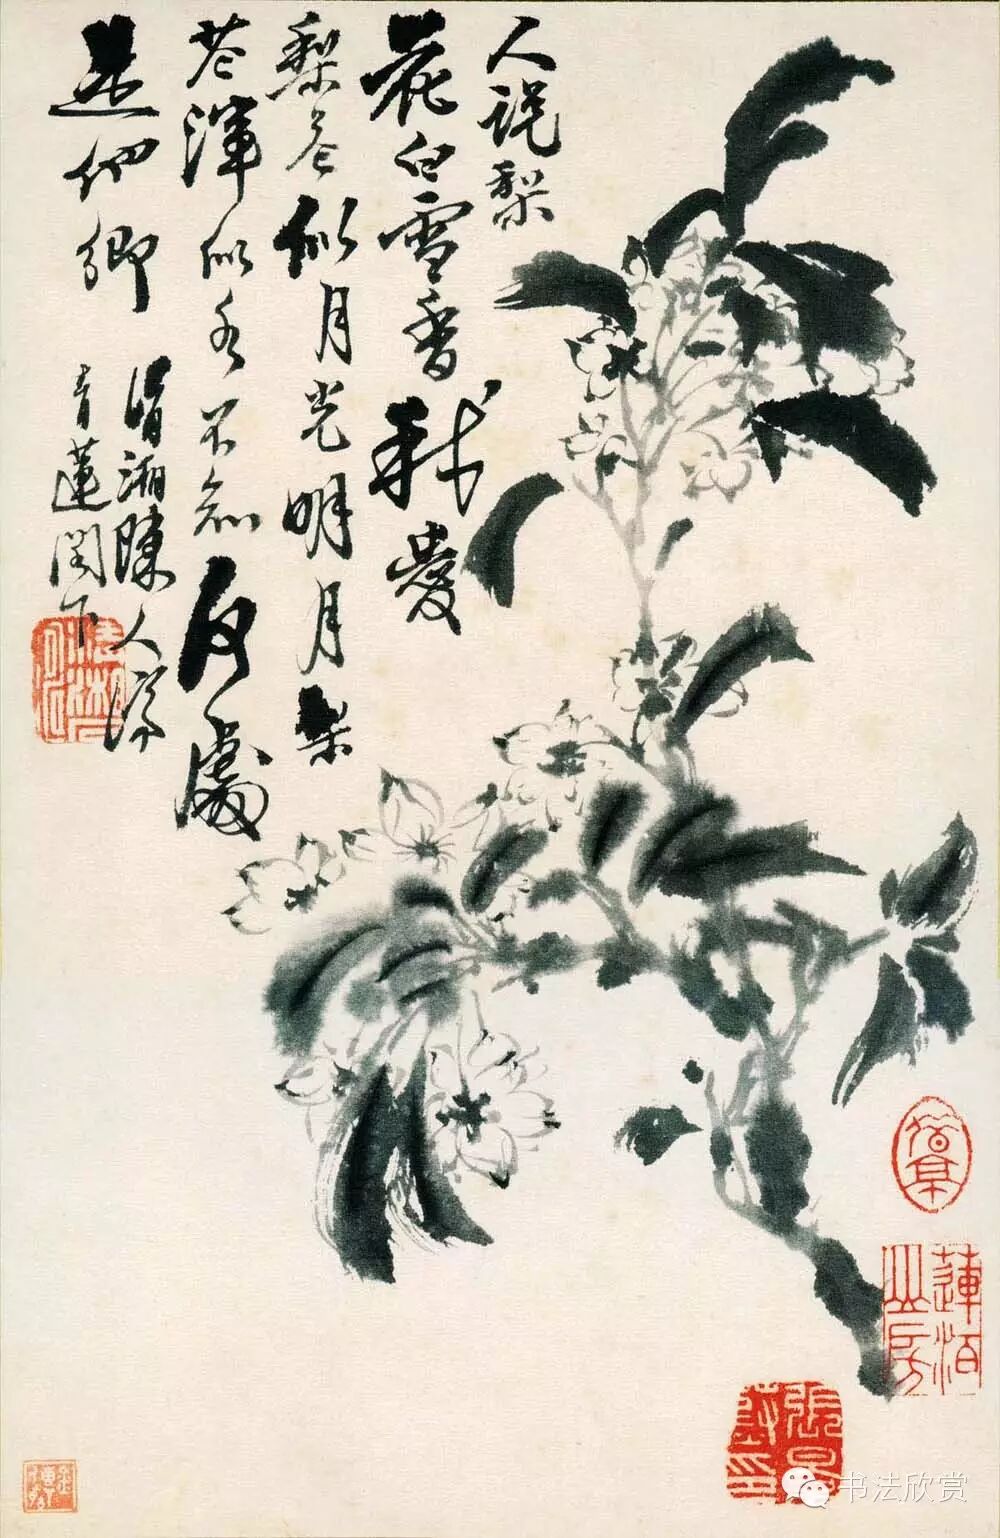 人說梨
花白雪香我愛
梨花似月光明月梨
花渾似水不知何處
是他鄉
清湘陳人濟
青蓮閣下
书法欣赏